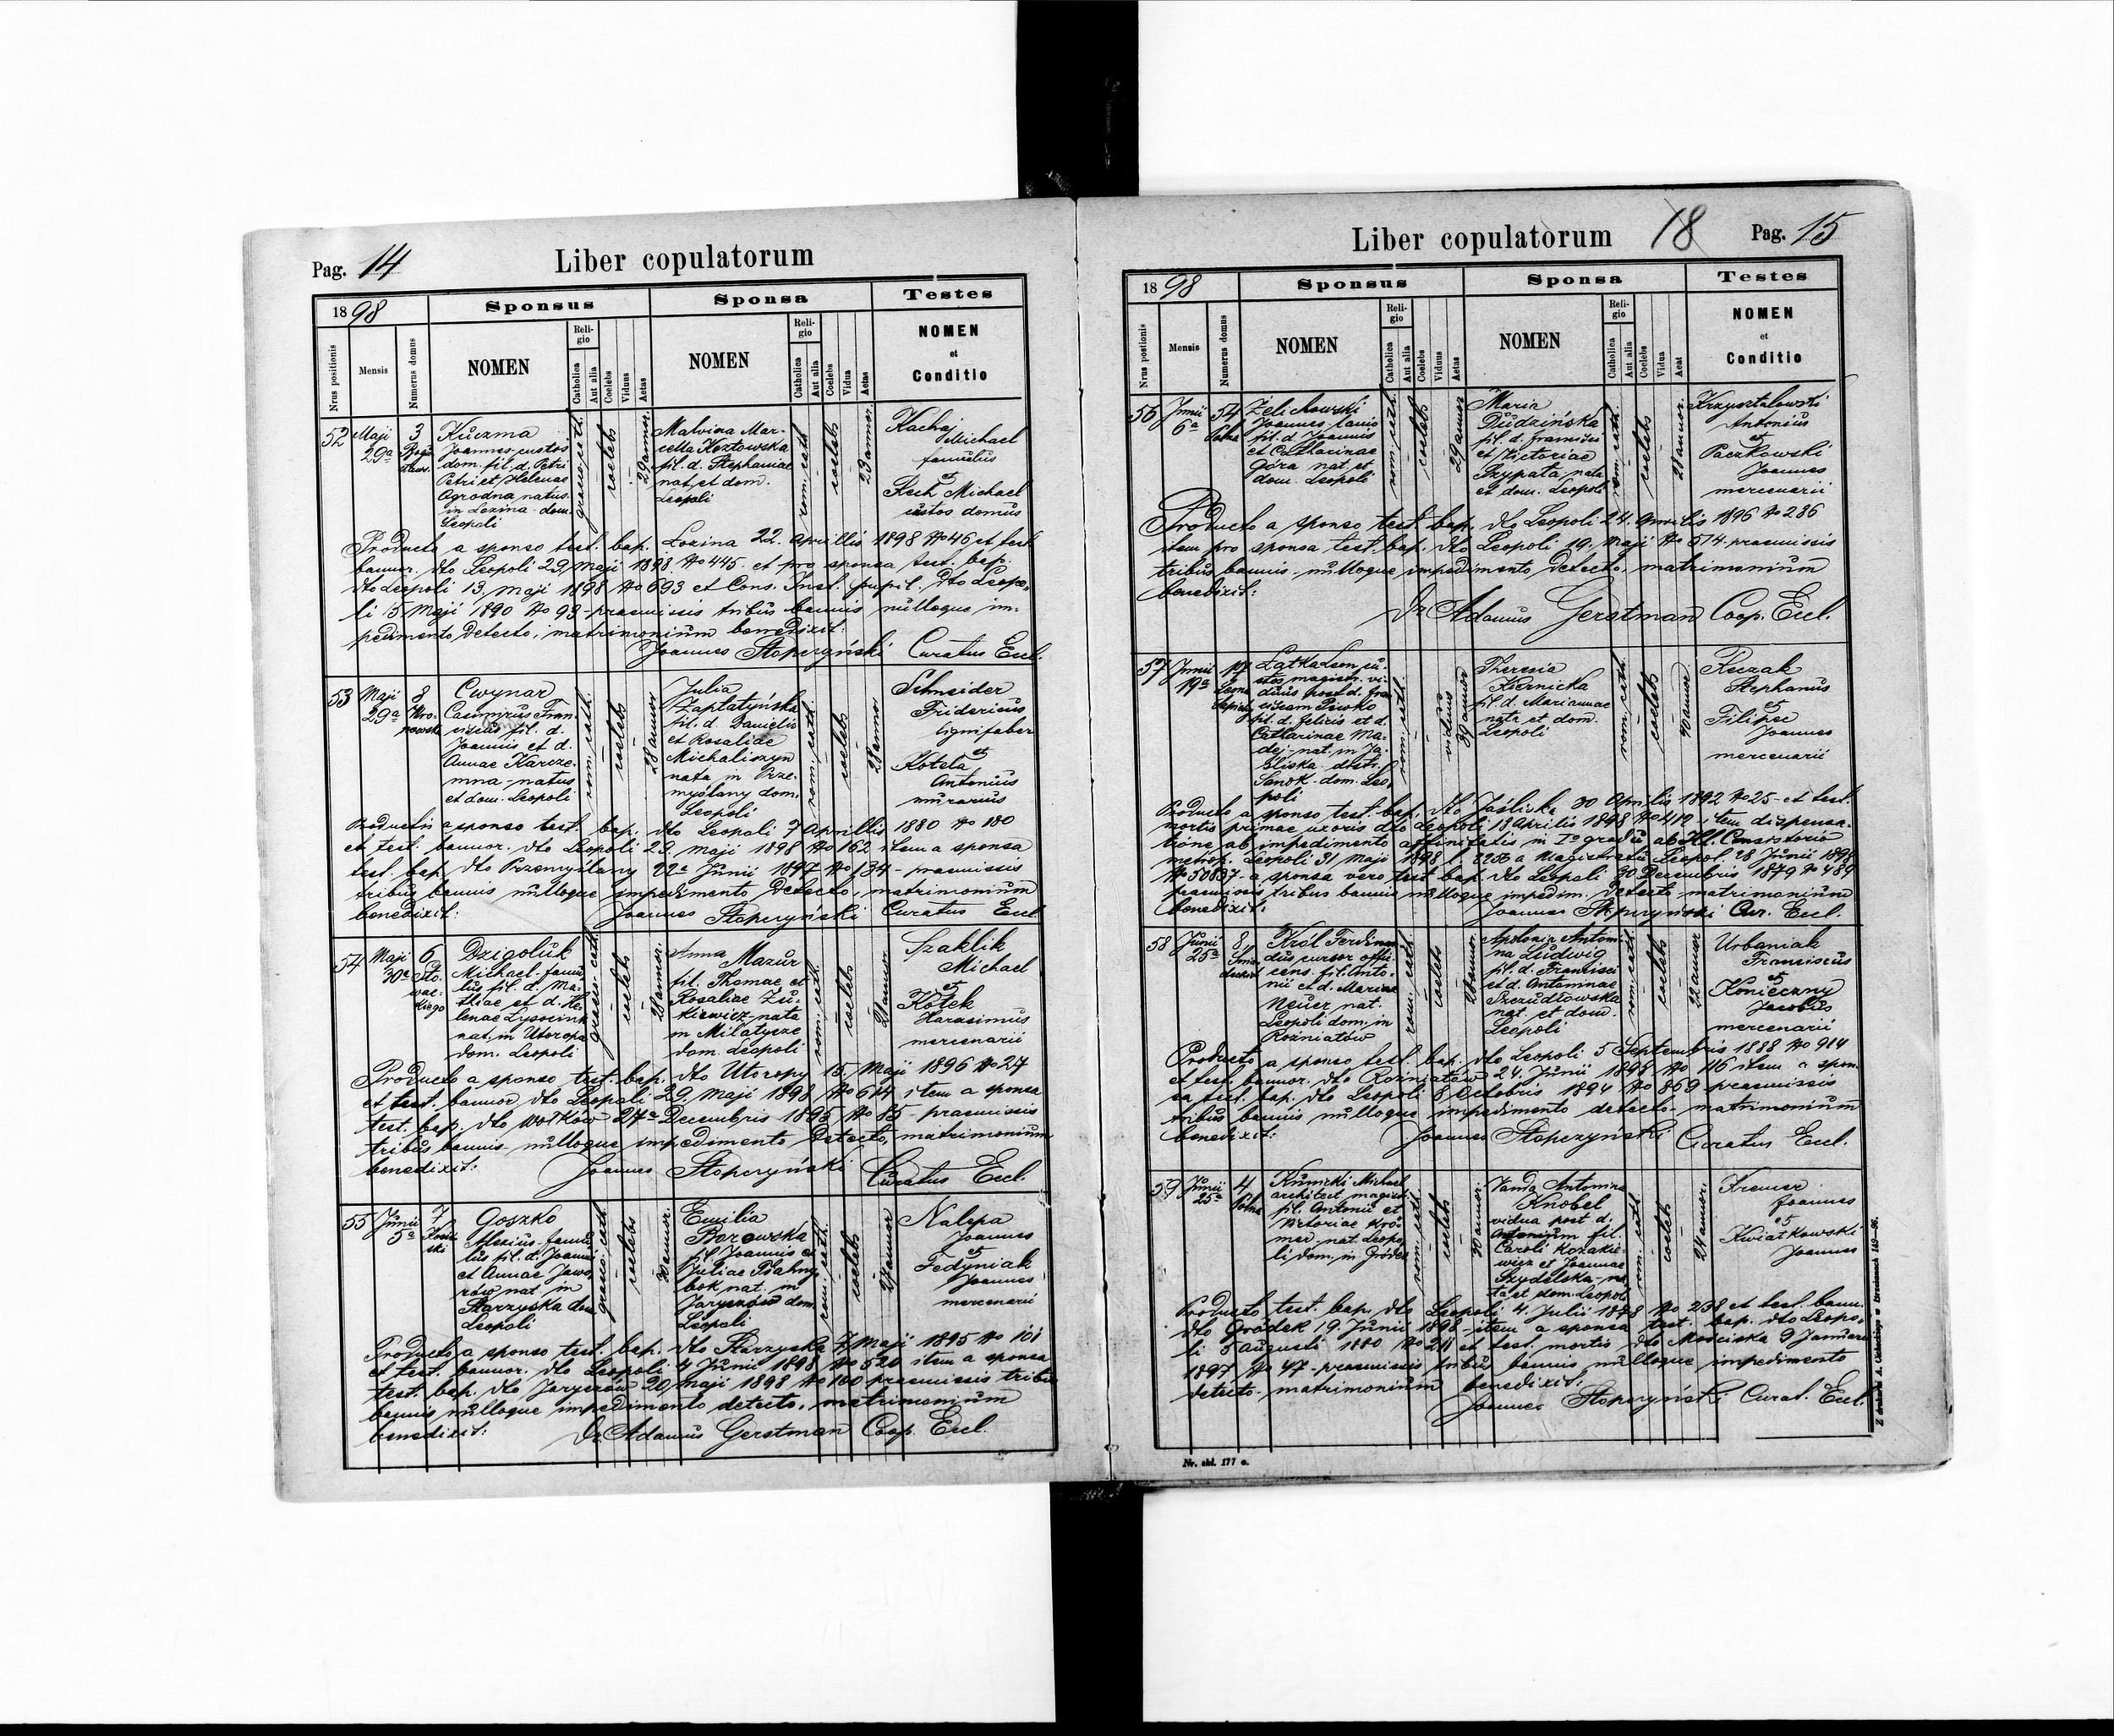 Pag. 14
Liber copulatorum
1898
Sponsus
Sponsa
Testes
Nrus positionis
Mensis
Numerus domus
NOMEN
Religio
Catholica
Aut alia
Coelebs
Viduus
Aetas
NOMEN
Religio
Catholica
Aut alia
Coelebs
Vidua
Aetas
NOMEN
et
Conditio
52
Maji
29a
3
Kuczma
Joannes custos
dom. fil. d. Petri
Petri et Helenae
Ogrodna natus
in Lozina dom.
Leopoli
graeco cath.
coelebs
29 annor.
Malvina Mar-
cella Kozłowska
fil. d. Stephaniae
nat. et dom.
Leopoli
rom. cath.
coelebs
23 annor.
Kachaj
Michael
famulus
et
Michael
custos domus
Producto a sponso test. bap. Lozina 22. Aprillis 1898 No 46 et test
bannor. dto Leopoli 29 Maji 1898 No 445. et pro sponsa test. bap.
dto Leopoli 13. Maji 1898 No 693 et Cons. Inst. pupil. dto Leopo-
li 15 Maji 1890 No 93 praemissis tribus bannis nulloque im-
pedimento detecto, matrimonium benedixit:
Joannes Stopczyński Curatus Eccl.
53
Maji
29a
8
Cwynar
Casimirus Fran-
ciscus fil. d.
Joannis et d.
Annae Karcze-
mna natus
et dom. Leopoli
rom. cath.
coelebs
28 annor
Julia
Zapłatyńska
fil. d. Danielis
et Rosaliae
Michaliszyn
nata in Prze-
myślany dom.
Leopoli
rom. cath.
coelebs
28 annor
Schneider
Fridericus
lignifaber
et
Koteła
Antonius
murarius
Productis a sponso test. bap. dto Leopoli 7 Aprillis 1880 No 180
et test. bannor. dto Leopoli 29. Maji 1898 No 162 item a sponsa
test. bap. dto Przemyślany 22a Junii 1897 No 134 praemissis
tribus bannis nulloque impedimento detecto, matrimonium
benedixit: Joannes Stopczyński Curatus Eccl
54
Maji
30a
6
Sło-
wac-
kiego
Dzigoluk
Michael famu-
lus fil. d. Ma-
thiae et d. He-
lenae Lysocink
nat. in Utoropa
dom. Leopoli
graeco. cath.
coelebs
28 annor.
Anna
Mazur
fil. Thomae et
Rosaliae Zu-
kiewicz nata
in Milatycze
dom. Leopoli
rom. cath.
coelebs
21 annor
Szaklik
Michael
et
Kotek
Harasimus
mercenarii
Producto a sponso test. bap. dto Utoropy 15. Maji 1896 No 27
et test. bannor dto Leopoli 29. Maji 1898 No 614 item a sponsa
test. bap. dto Wołków 27a Decembris 1895 No 85 praemissis
tribus bannis nulloque impedimento detecto, matrimonium
benedixit: Joannes Stopczyński Curatus Eccl.
55
Junii
5a
7
Goszko
Alexius famu-
lus fil. d. Joannis
et Annae Jawo-
rów nat. in
Starzyska dom.
Leopoli
graeco. cath
coelebs
30 annor.
Emilia
Borowska
fil. Joannis et
Juliae
nat. in
Jaryczów dom.
Leopoli
rom. cath.
coelebs
Nalepa
Joannes
et
Fedyniak
Joannes
mercenarii
Producto a sponso test. bap. dto Starzyska 7 Maji 1895 No 101
et test. bannor. dto Leopoli 4 Junii 1898 No 520 item a sponsa
test. bap. dto Jaryczów 20 Maji 1898 No 100 praemissis tribus
bannis nulloque impedimento detecto, matrimonium
benedixit: Dr. Adamus Gerstman Coop. Eccl.
Liber copulatorum
18
Pag. 15
1898
Sponsus
Sponsa
Testes
Nrus positionis
Mensis
Numerus domus
NOMEN
Religio
Catholica
Aut alia
Coelebs
Viduus
Aetas
NOMEN
Religio
Catholica
Aut alia
Coelebs
Vidua
Aeat
NOMEN
et
Conditio
56
Junii
6a
54
Polna
Żelichowski
Joannes lanio
fil. d. Joannis
et Catharinae
Góra nat. et
dom. Leopoli
rom. cath.
coelebs
29 annor
Maria
Dudzińska
fil. d. Francisci
et Victoriae
Przypata nata
et dom. Leopoli
rom. cath.
coelebs
28 annor.
Krzysztalowski
Antonius
et
Paczkowski
Joannes
mercenarii
Producto a sponso test. bap. dto Leopoli 24. Aprilis 1896 No 286
item pro sponsa test. bap. dto Leopoli 19. Maji No 574 praemissis
tribus bannis nulloque impedimento detecto, matrimonium
benedixit:
Dr Adamus Gerstman Coop. Eccl.
57
Junii
19a
Łatka Leon cu-
stos magistr. vi-
duus post d. Fran-
ciscam Piwko
fil. d. Felicis et d.
Catharinae Ma-
dej nat. in Ja-
śliska distr.
Sanok dom. Leo-
poli
rom. cath.
viduus
39 annor
Theresia
Kiernicka
fil. d. Mariannae
nata et dom.
Leopoli
rom. cath.
coelebs
Ryczak
Stephanus
et
Filipse
Joannes
mercenarii
Producto a sponso test. bap. dto Jaśliska 30 Aprilis 1892 No 25 et test.
mortis primae uxoris dto Leopoli 18 Aprilis 1898 No 419 item dispensa-
tione ab impedimento affinitatis in Io gradu ab Ill. Consistorio
metrop. Leopoli 31 Maji 1898 l. 2256 a Magistratu Leopol. 28 Junii 1898
No 50837 a sponsa vero test bap. dto Leopoli 30 Decembris 1879 No 489
praemissis tribus bannis nulloque impedim. detecto matrimonium
benedixit: Joannes Stopczyński Cur. Eccl.
58
Junii
25a
8
Król Ferdinan-
dus cursor offi-
cens. fil. Anto-
nii et d. Mariae
Neuer nat.
Leopoli dom. in
Rożniatów
rom. cath.
coelebs
28 annor.
Apolonia Antoni-
na Ludwig
fil. d. Francisci
et d. Antoninae
Szczudłowska
nat. et dom.
Leopoli
rom. cath.
coelebs
22 annor
Urbaniak
Franciscus
et
Konieczny
Jacobus
mercenarii
Producto a sponso test. bap. dto Leopoli 5 Septembris 1888 No 914
et test. bannor. dto Rożniatów 24. Junii 1898 No 116 item a spon-
sa test. bap. dto Leopoli 8 Octobris 1894 No 869 praemissis
tribus bannis nulloque impedimento detecto matrimonium
benedixit: Joannes Stopczyński Curatus Eccl.
59
Junii
25a
4
Polna
Kunicki Michael
architect. magist.
fil. Antonii et
Victoriae Kro-
mer nat. Leopo-
li dom. in Gródek
rom. cath.
coelebs
30 annor.
Vanda Antonina
Knobel
vidua post d.
Antonium fil.
Caroli Kozakie-
wicz et Joannae
Szydelska na-
ta et dom. Leopoli
rom. cath
coelebs
24 annor.
Kremer
Joannes
et
Kwiatkowski
Joannes
Producto test. bap. dto Leopoli 4. Julii 1878 No 238 et test. bann.
dto Gródek 19. Junii 1898 item a sponsa test. bap. dto Leopo-
li 5 Augusti 1880 No 211 et test. mortis dto Mościska 9 Januarii
1897 No 47 praemissis tribus bannis nulloque impedimento
detecto matrimonium benedixit:
Joannes Stopczyński Curat. Eccl.
Nr. skl. 177 a.